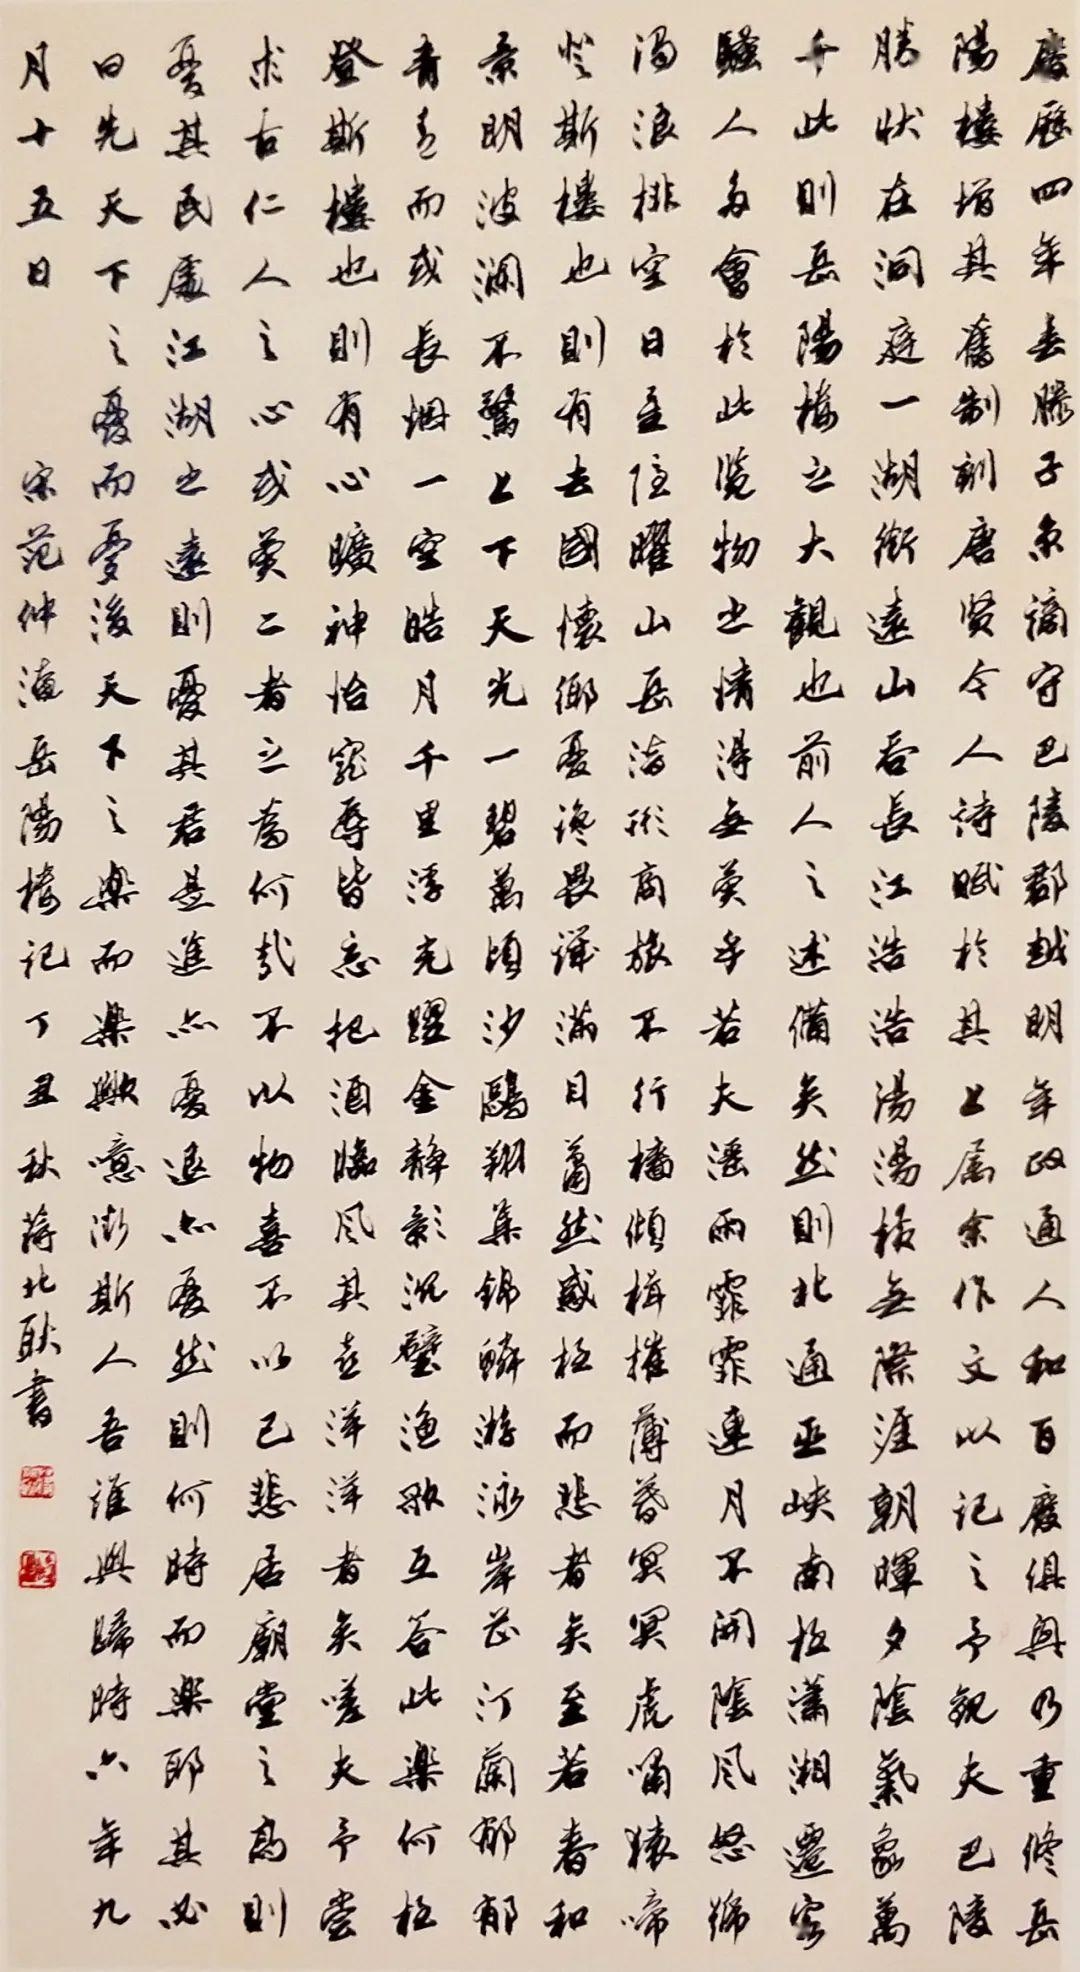 慶歷四年春滕子京謫守巴陵郡越明年政通人和百廢俱興乃重修岳
陽樓增其舊制刻唐賢今人詩賦於其上属余作文以記之予觀夫巴陵
勝狀在洞庭一湖銜遠山吞長江浩浩湯湯橫無際涯朝暉夕陰氣象萬
千此則岳陽樓之大觀也前人之述備矣然則北通巫峽南極瀟湘遷客
騷人多會於此覽物之情得無異乎若夫淫雨霏霏連月不開陰風怒號
濁浪排空日星隱曜山岳潛形商旅不行檣傾楫摧薄暮冥冥虎嘯猿啼
登斯樓也則有去國懷鄉憂讒畏譏滿目蕭然感極而悲者矣至若春和
景明波瀾不驚上下天光一碧萬頃沙鷗翔集錦鱗游泳岸芷汀蘭郁郁
青青而或長烟一空皓月千里浮光躍金靜影沉璧漁歌互答此樂何極
登斯樓也則有心曠神怡寵辱皆忘把酒臨風其喜洋洋者矣嗟夫予嘗
求古仁人之心或異二者之為何哉不以物喜不以己悲居廟堂之高則
憂其民處江湖之遠則憂其君是進亦憂退亦憂然則何時而樂耶其必
曰先天下之憂而憂後天下之樂而樂歟噫微斯人吾誰與歸時六年九
月十五日 宋范仲淹岳陽樓記丁丑秋蔣北耿書